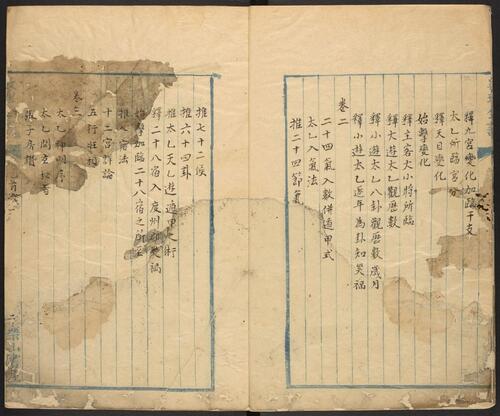 釋九宮變化加臨干支
太乙所臨宮分
釋天目變化
始擊變化
釋主客大小將所臨
釋大遊太乙觀曆數
釋小遊太乙八卦觀曆數歲月
釋小遊太乙逐年為卦知災福
卷二
二十四氣入數併遁甲式
太乙入氣法
推二十四節氣
推七十二候
推六十四卦
推太乙天乙遊遁甲之術
釋二十八宿入度州災福
始擊加臨二十八宿之所主
推八宿法
十二宮辯論
五行旺相
卷三
太乙神明序
太乙間立於等
張子房贊